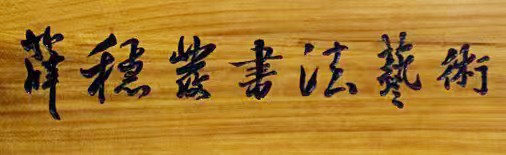 薛穗叢書法藝術